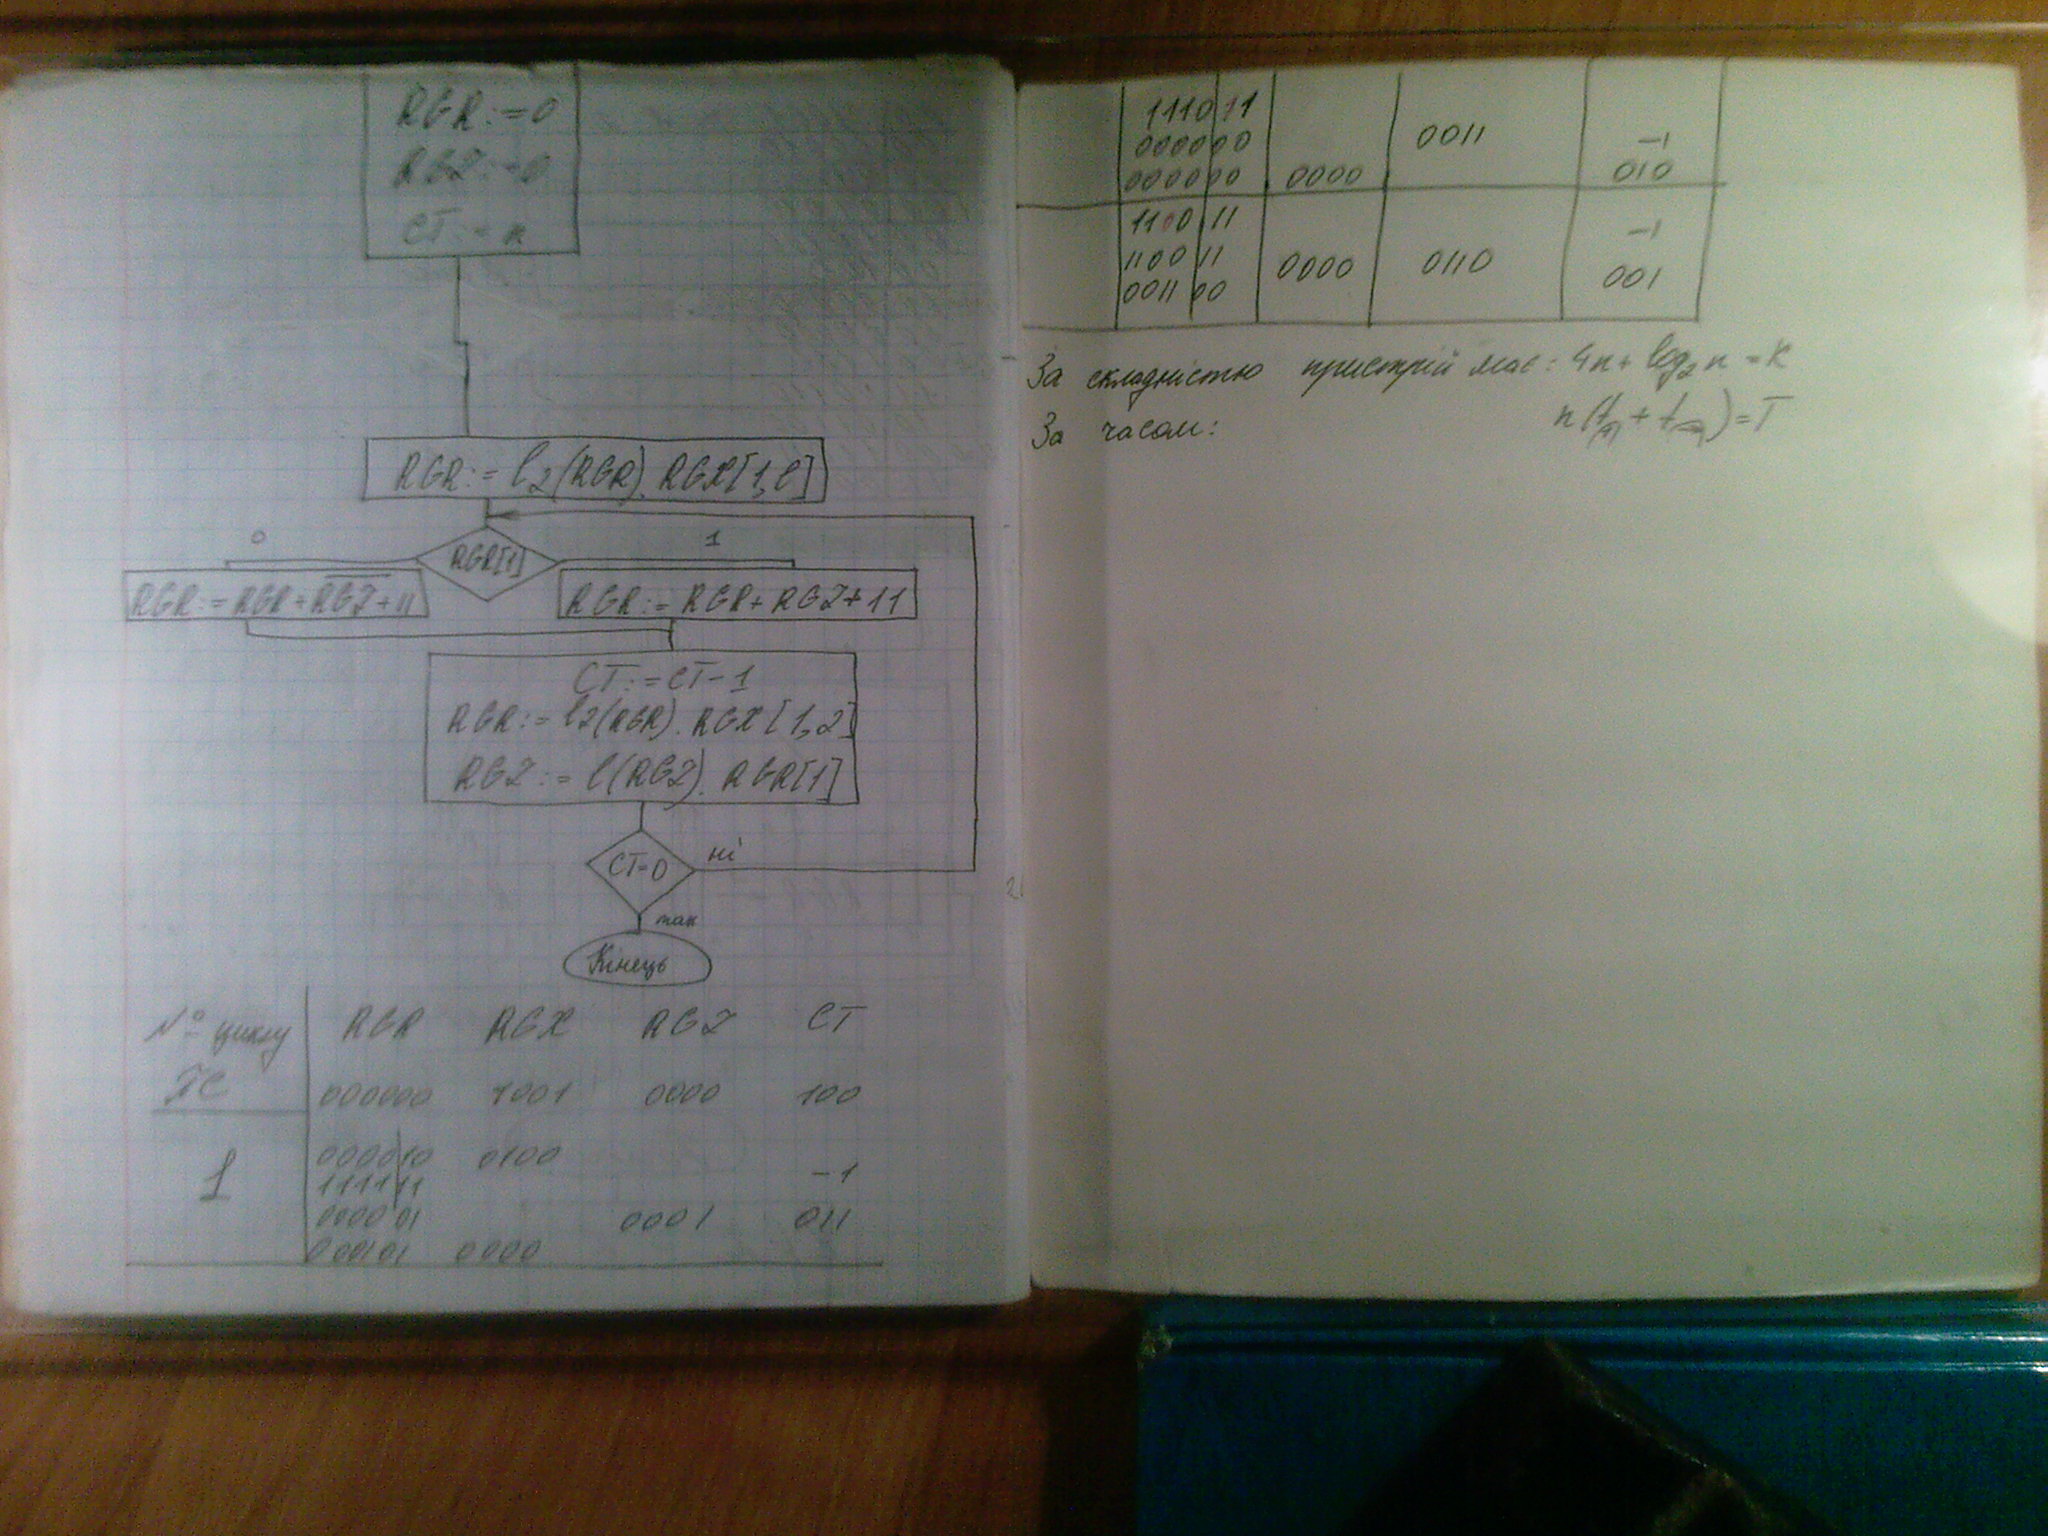 RGR:=0
RGZ:=0
CT:=n
RGR:= l2(RGR).RGX[1,2]
0
RGR[1]
1
RGR:=RGR+R̅G̅Z̅+11
RGR:=RGR+RGZ+11
CT:=CT-1
RGR:=l2(RGR).RGX[1,2]
RGZ:=l(RGZ).RGR[1]
CT=0
ні
так
Кінець
№ циклу RGR RGX RGZ CT
ПС 000000 1001 0000 100
1
000010 0100
111111 -1
000001 0001 011
000101 0000
111011
000000 0011 -1
000000 0000 010
110011 -1
110011 0000 0110
001100 001
За складністю пристрій має: 4n+log₂n=K
За часом: n(t + t)=T